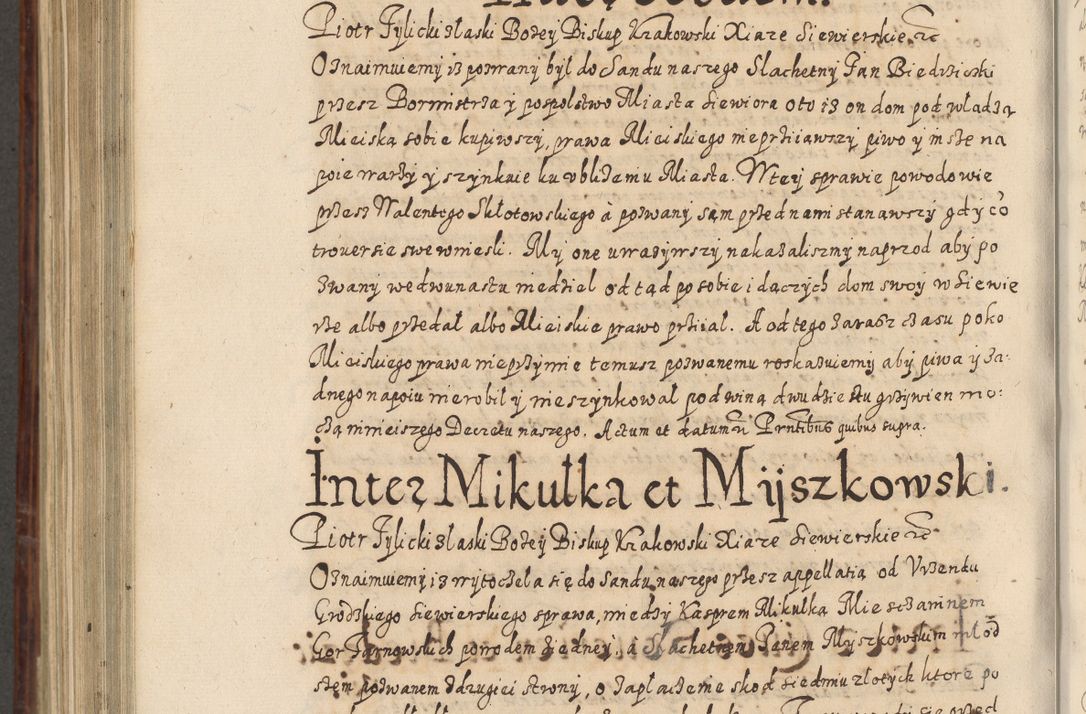 Piotr Tylicki z łaski Bożey Biskup Krakowski Xiąże Siewierskie etc
Oznaimuiemy iż pozwany był do Sandu naszego Slachetny Jan Biedrzicki
przesz Bormistrza y pospolstwo Miasta Siewiora oto iż on dom pod władzą
Mieiską sobie kupiwszy, prawa Mieiskiego nieprziiawszy piwo y insze na
poie warzy y szynkuie ku ubliżemu Miasta. W tey sprawie powodowie
przesz Walentego Skłotowskiego à pozwany sąm przed nami stanąwszy gdy cō
trouersie swe wniesli. My one uważywszy nakazaliszmy naprzod aby po
zwany we dwunastu niedziel od tąd po sobie idączych dom swoy w Siewie
rze albo przedał albo Mieiskie prawo prziiał. A od tego zarasz czasu poko
Mieiskiego prawa nieprzymie temusz pozwanemu roskazuiemy aby piwa y ża:
dnego napoiu nierobił y nieszynkował pod winą dwudziestu grzywien mo:
czą ninieiszego Decretu naszego. Actum et datum Prntibus quibus supra.
Inter Mikułka et Mijszkowski.
Piotr Tylicki z łaski Bożey Biskup Krakowski Xiąże Siewierskie etc
Oznaimuiemy iż wytoczeła się do Sandu naszego przesz appellatią od Urzendu
Grodzkiego Siewierskiego sprawa, miedzy Kasprem Mikułka Miesczaninem
Gor Tarnowskich powodem z iedney, a Slachetnem Panem Myszkowskim młod
szem pozwanem z drugiei strony, o zapłaczenie skod siedmu złotych ktore po